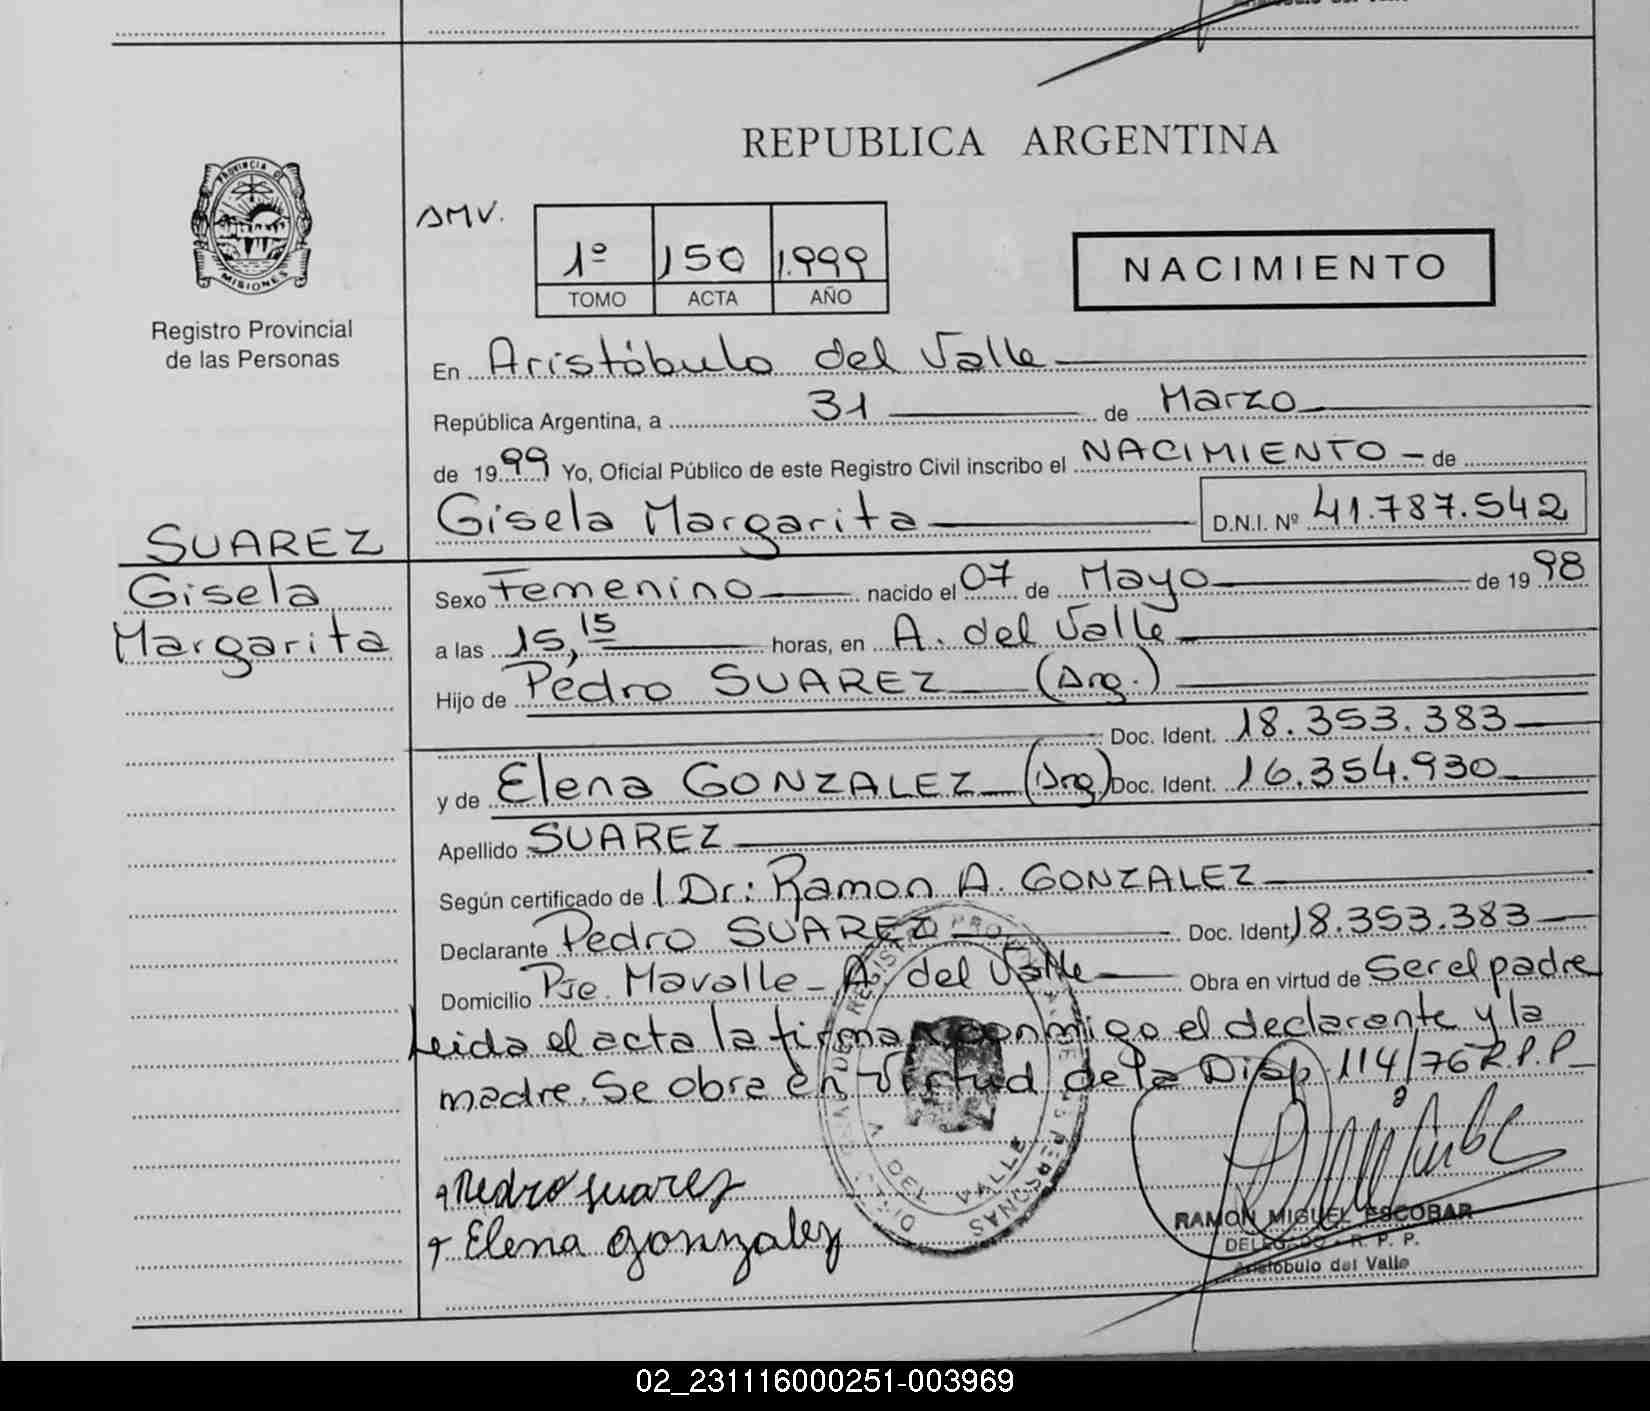 PROVINCIA DE
MISIONES
Registro Provincial
de las Personas
SUAREZ
Gisela
Margarita
REPUBLICA ARGENTINA
AMV.
1º 150 1.999
TOMO ACTA AÑO
NACIMIENTO
En Aristóbulo del Valle
República Argentina, a 31 de Marzo
de 1999 Yo, Oficial Público de este Registro Civil inscribo el NACIMIENTO - de
Gisela Margarita D.N.I. Nº 41.787.542
Sexo Femenino nacido el 07 de Mayo de 1998
a las 15,15 horas, en A. del Valle
Hijo de Pedro SUAREZ (Arg.)
Doc. Ident. 18.353.383
y de Elena GONZALEZ (Arg.) Doc. Ident. 16.354.930
Apellido SUAREZ
Según certificado de l Dr: Ramon A. GONZALEZ
Declarante Pedro SUAREZ Doc. Ident. 18.353.383
Domicilio Pje. Mavalle - A. del Valle Obra en virtud de Ser el padre
Leida el acta la firman conmigo el declarante y la
madre. Se obra en virtud de la Disp. 114/76 R.P.P
Pedro suarez
Elena gonzalez
RAMON MIGUEL ESCOBAR
DELEGADO - R. P. P.
Aristóbulo del Valle
02_231116000251-003969